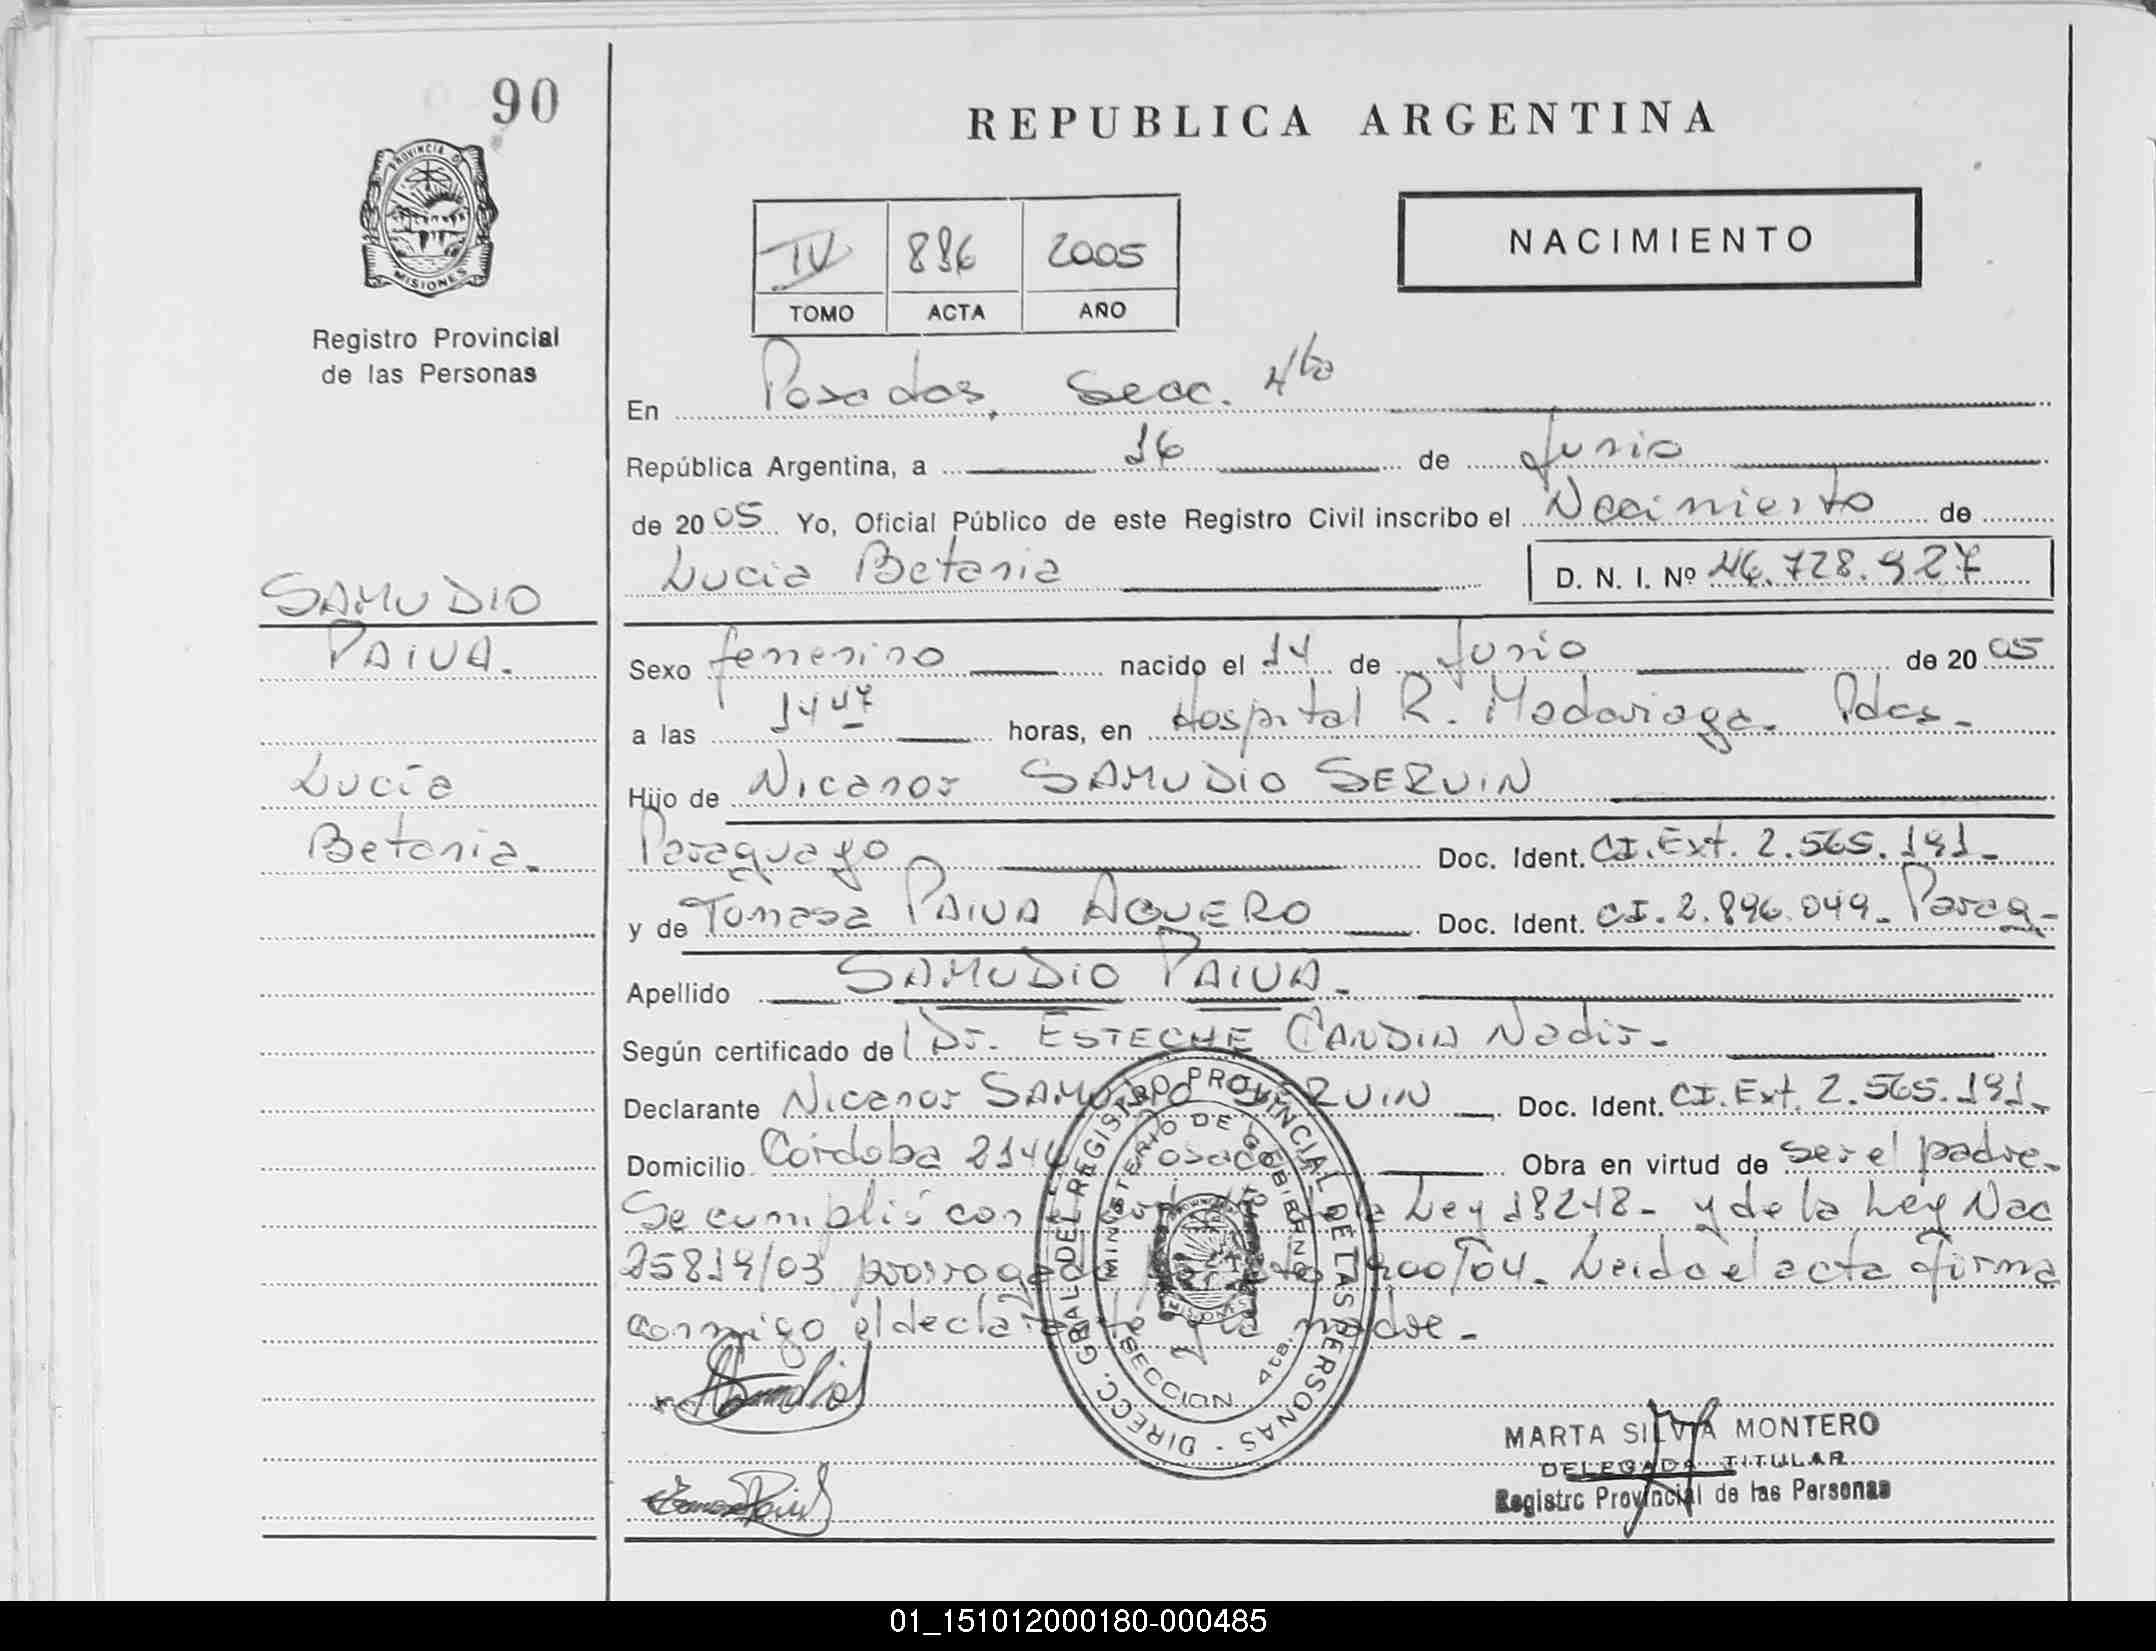 90
PROVINCIA DE
MISIONES
Registro Provincial
de las Personas
SAMUDIO
PAIVA.
Lucía
Betania.
REPUBLICA ARGENTINA
IV 896 2005
TOMO ACTA AÑO
NACIMIENTO
En Posadas, Secc. 4ta
República Argentina, a 16 de Junio
de 2005 Yo, Oficial Público de este Registro Civil inscribo el Nacimiento de
Lucia Betania D. N. I. Nº 46.728.927
Sexo femenino nacido el 14 de Junio de 2005
a las 14 47 horas, en Hospital R. Madariaga. Pdas.
Hijo de Nicanor SAMUDIO SERVIN
Paraguayo Doc. Ident. CI. Ext. 2.565.191.
y de Tomasa PAIVA AGUERO Doc. Ident. CI. 2.896.049. Parag.
Apellido SAMUDIO PAIVA.
Según certificado de Dr. ESTECHE CANDIA Nadir.
Declarante Nicanor SAMUDIO SERVIN Doc. Ident. CI. Ext. 2.565.191.
Domicilio Córdoba Posadas Obra en virtud de ser el padre.
Se cumplió con Ley 18248. y de la Ley Nac
25819/03 Leida el acta firma
conmigo el declarante y la madre.
DIRECC. GRAL DEL REGISTRO PROVINCIAL DE LAS PERSONAS
MINISTERIO DE GOBIERNO
MISIONES
SECCION 4ta.
MARTA SILVIA MONTERO
DELEGADA TITULAR
Registro Provincial de las Personas
01_151012000180-000485